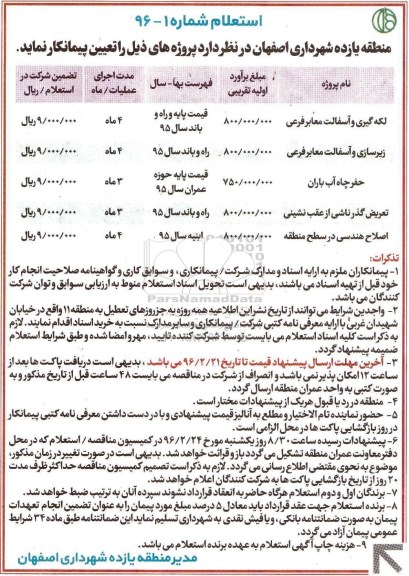 استعلام شماره ۱-۹۶
منطقه یازده شهرداری اصفهان در نظر دارد پروژه های ذیل را تعیین پیمانکار نماید.
نام پروژه	مبلغ برآورد اولیه تقریبی	فهرست بها - سال	مدت اجرای عملیات/ ماه	تضمین شرکت در استعلام / ریال
لکه گیری و آسفالت معابر فرعی	۸۰۰/۰۰۰/۰۰۰	قیمت پایه و راه و باند سال ۹۵	۴ ماه	۹/۰۰۰/۰۰۰ ریال
زیرسازی و آسفالت معابر فرعی	۸۰۰/۰۰۰/۰۰۰	راه و باند سال ۹۵	۴ ماه	۹/۰۰۰/۰۰۰ ریال
حفر چاه آب باران	۷۵۰/۰۰۰/۰۰۰	قیمت پایه حوزه عمران سال ۹۵	۳ ماه	۹/۰۰۰/۰۰۰ ریال
تعریض گذر ناشی از عقب نشینی	۸۰۰/۰۰۰/۰۰۰	راه و باند سال ۹۵	۳ ماه	۹/۰۰۰/۰۰۰ ریال
اصلاح هندسی در سطح منطقه	۸۰۰/۰۰۰/۰۰۰	ابنیه سال ۹۵	۴ ماه	۹/۰۰۰/۰۰۰ ریال
تذکرات:
۱- پیمانکاران ملزم به ارایه اسناد و مدارک شرکت/ پیمانکاری، و سوابق کاری و گواهینامه صلاحیت انجام کار
خود قبل از تهیه اسناد می باشند، بدیهی است تحویل اسناد استعلام منوط به ارزیابی سوابق و توان شرکت
کنندگان می باشد.
۲- واجدین شرایط می توانند از تاریخ نشر این اطلاعیه همه روزه به جز روزهای تعطیل به منطقه ۱۱ واقع در خیابان
شهیدان غربی با ارایه معرفی نامه کتبی شرکت/ پیمانکاری و سایر مدارک نسبت به خرید اسناد اقدام نمایند. لازم
به ذکر است کلیه اسناد استعلام می بایست توسط شرکت کننده تایید، مهر و امضا شده و طبق شرایط استعلام
ضمیمه پیشنهاد گردد.
۳- آخرین مهلت ارسال پیشنهاد قیمت تا تاریخ ۹۶/۲/۲۱ می باشد، بدیهی است دریافت پاکت ها بعد از
ساعت ۱۲ امکان پذیر نمی باشد و انصراف از شرکت در مناقصه می بایست ۴۸ ساعت قبل از تاریخ مذکور و به
صورت کتبی به واحد عمران منطقه ارسال گردد.
۴- منطقه در رد یا قبول هر یک از پیشنهادات مختار است.
۵- حضور نماینده تام الاختیار و مطلع به آنالیز قیمت پیشنهادی و با در دست داشتن معرفی نامه کتبی پیمانکار
در روز بازگشایی پاکت ها در محل الزامی است.
۶- پیشنهادات رسیده ساعت ۸/۳۰ روز یکشنبه مورخ ۹۶/۲/۲۴ در کمیسیون مناقصه / استعلام که در محل
دفتر معاونت عمران منطقه تشکیل می گردد باز و قرائت خواهد شد. بدیهی است در صورت تغییر در زمان مذکور،
موضوع به نحوی مقتضی اطلاع رسانی می گردد. لازم به ذکر است تصمیم کمیسیون مناقصه حداکثر ظرف مدت
۲۰ روز از تاریخ بازگشایی پاکت ها به شرکت کنندگان اعلام خواهد شد.
۷- برندگان اول و دوم استعلام هرگاه حاضر به انعقاد قرارداد نشوند سپرده آنان به ترتیب ضبط خواهد شد.
۸- برنده استعلام جهت عقد قرارداد باید معادل ۵ درصد مبلغ مورد پیمان را به عنوان تضمین انجام تعهدات
پیمان به صورت ضمانتنامه بانکی، و یا فیش نقدی به شهرداری تسلیم نماید این ضمانتنامه طبق ماده ۳۴ شرایط
عمومی پیمان آزاد می گردد.
۹- هزینه چاپ آگهی استعلام به عهده برنده استعلام می باشد.
مدیر منطقه یازده شهرداری اصفهان
ParsNamadData